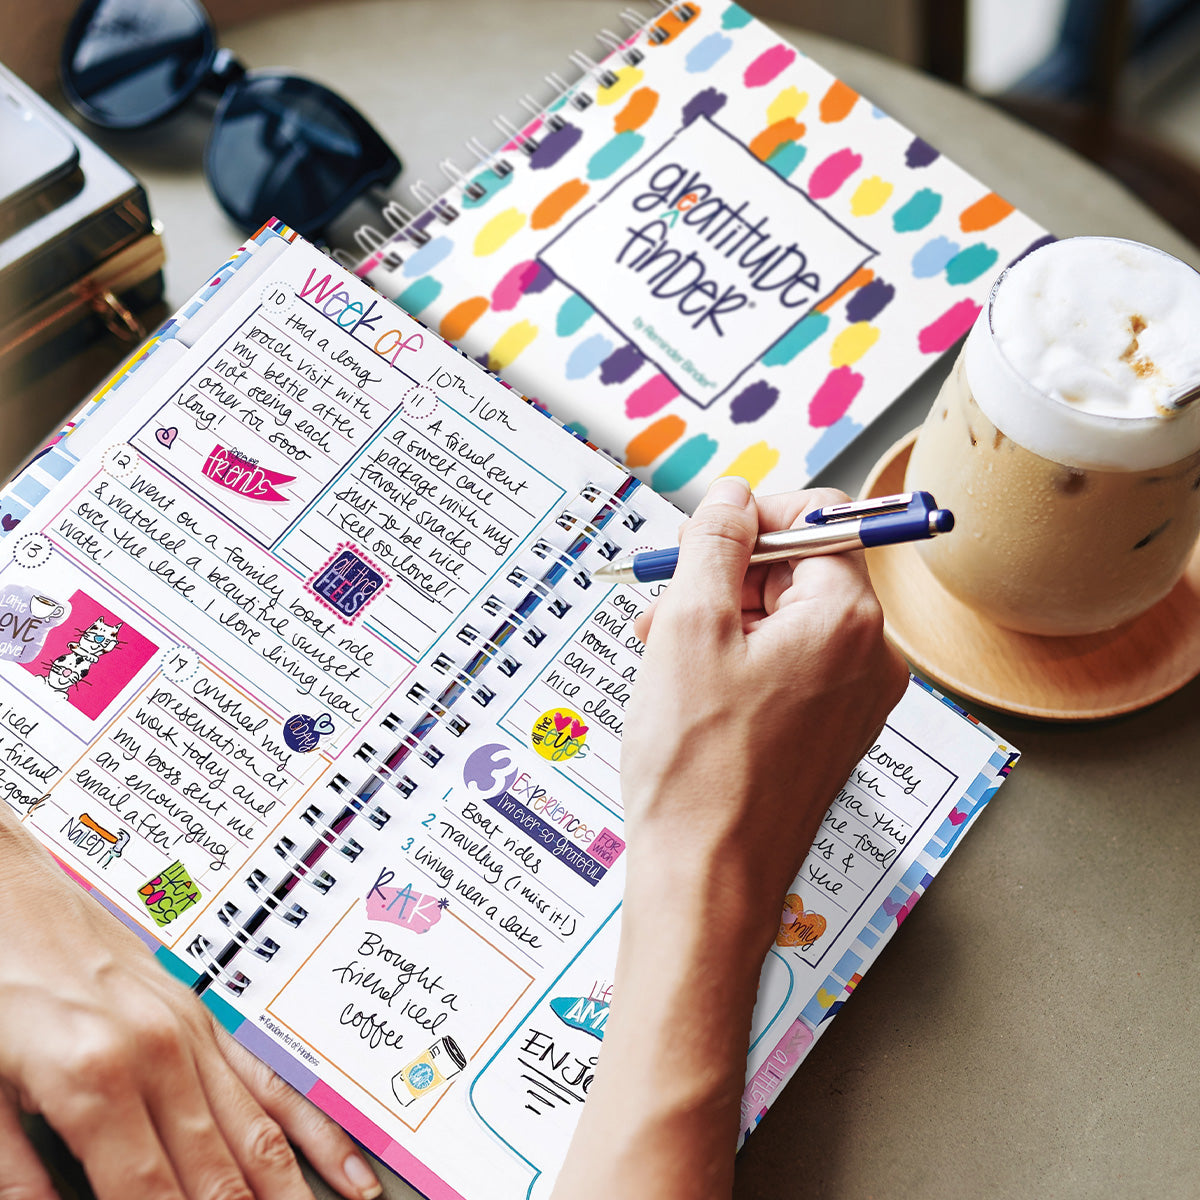 greatitude
finder®
by Reminder Binder®
Week of
10th-16th
10
Had a long
porch visit with
my bestie after
not seeing each
other for sooo
long!
friends
11
A friend sent
a sweet care
package with my
favorite snacks
just to be nice.
I feel so loved!
all the
FEELS
12
Went on a family boat ride
& watched a beautiful sunset
over the lake. I love living near
water!
13
Latte
LOVE
iced
friend
good
14
Crushed my
presentation at
work today and
my boss sent me
an encouraging
email after!
NAILED
it
LIKE A
BOSS
and
room
can
nice
all the
eyes
3 Experiences
I'm ever-so grateful
FOR
which
1. Boat rides
2. Traveling (I miss it!)
3. Living near a lake
R.A.K*
Brought a
friend iced
coffee
*Random Act of Kindness
AM
ENJO
lovely
this
food
&
the
a little